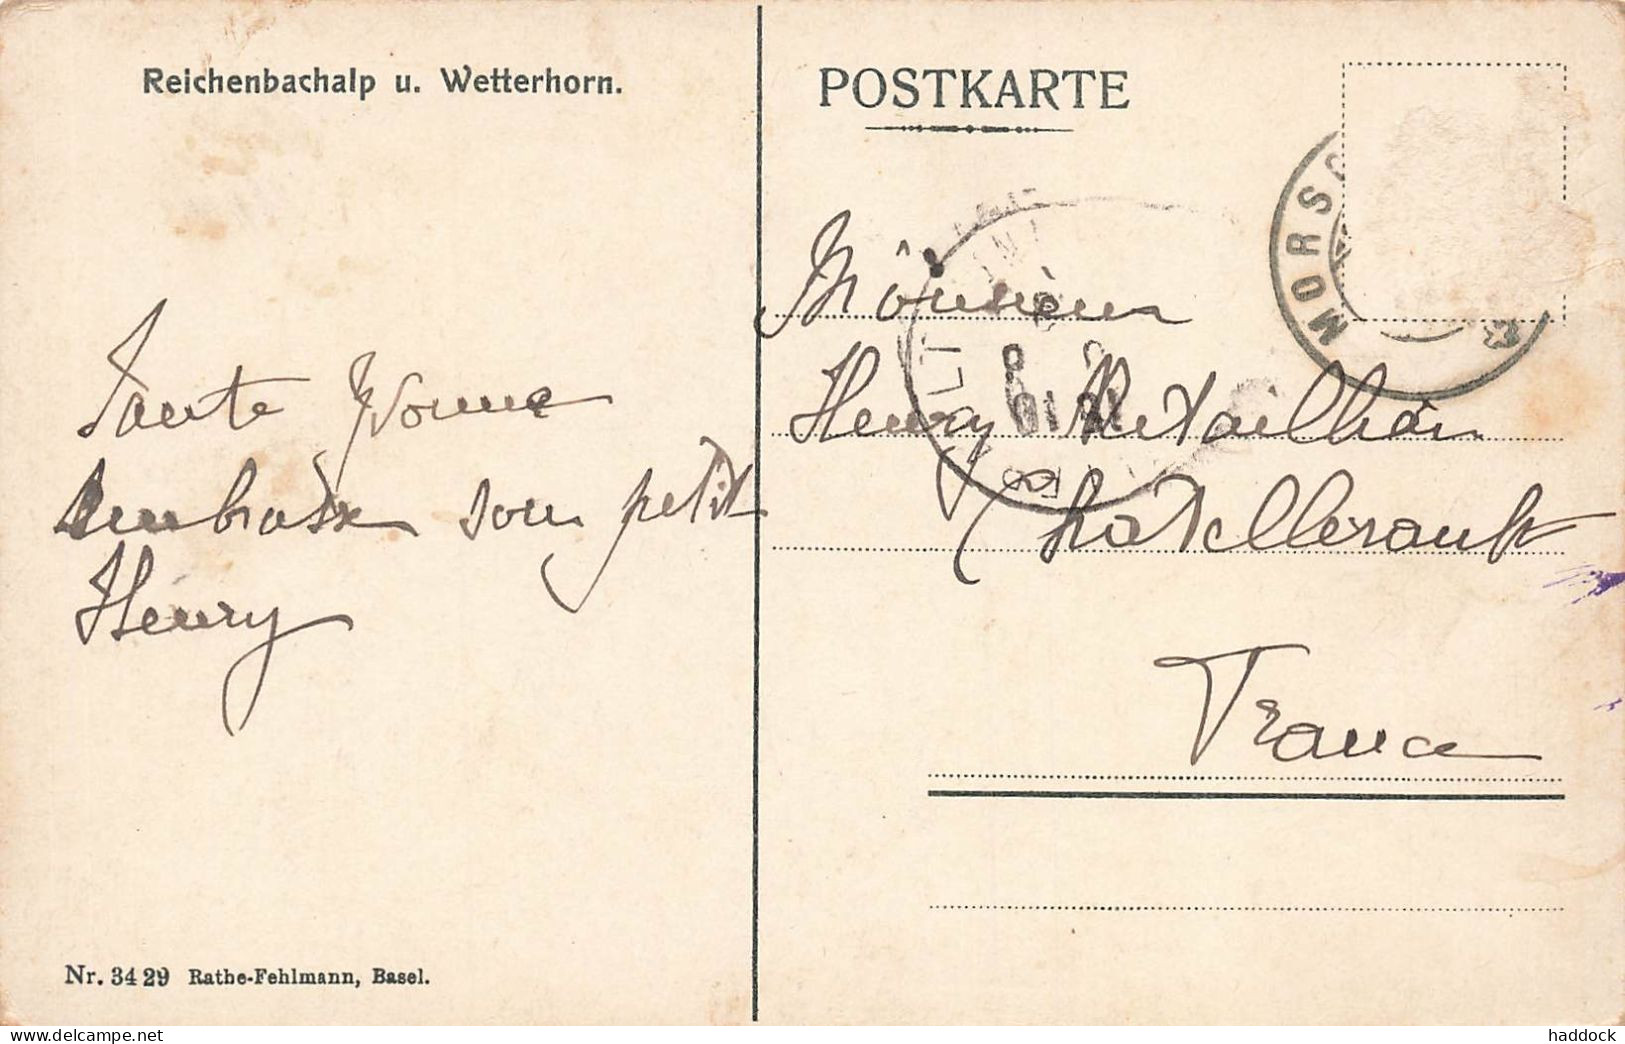 Reichenbachalp u. Wetterhorn.
POSTKARTE
MORSC
Tante Yvonne
embrasse son petit
Henry
Monsieur
Henry Retailhau
Chatellerault
France
Nr. 3429 Rathe-Fehlmann, Basel.
www.delcampe.net
haddock